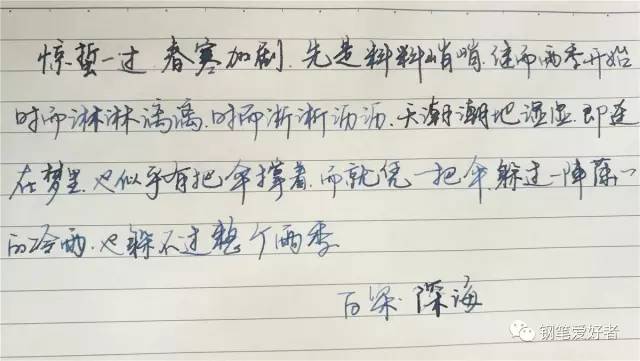 惊蛰一过,春寒加剧.先是料料峭峭.继而雨季开始
时而淋淋漓漓.时而淅淅沥沥.天潮潮地湿湿.即连
在梦里.也似乎有把伞撑着.而就凭一把伞.躲过一阵潇潇
的冷雨.也躲不过整个雨季
百梁·深海
钢笔爱好者